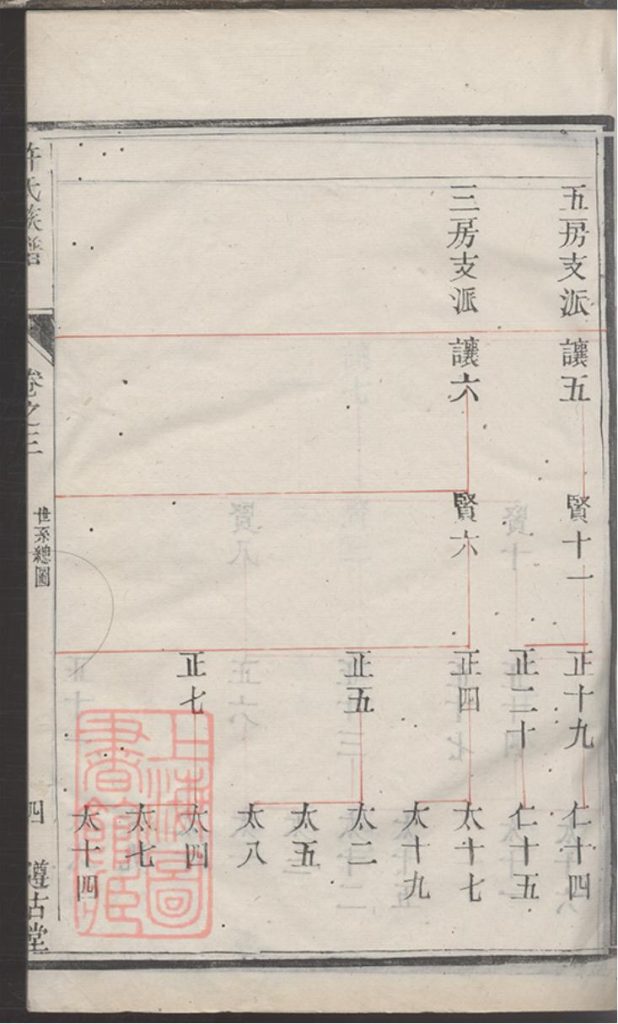 五房支派 讓五 賢十一 正十九 仁十四
正二十 仁十五
三房支派 讓六 賢六 正四 太十七
太十九
正五 太二
太五
太八
正七 太四
太七
太十四
許氏族譜 卷之三 世系總圖 四 遵古堂
上海圖書館藏